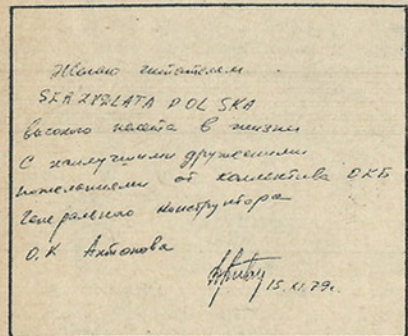 Желаю читателям
SKRZYDLATA POLSKA
высокого полёта в жизни
С наилучшими дружескими
пожеланиями от коллектива ОКБ
Генерального конструктора
О.К Антонова
15.XI.79г.